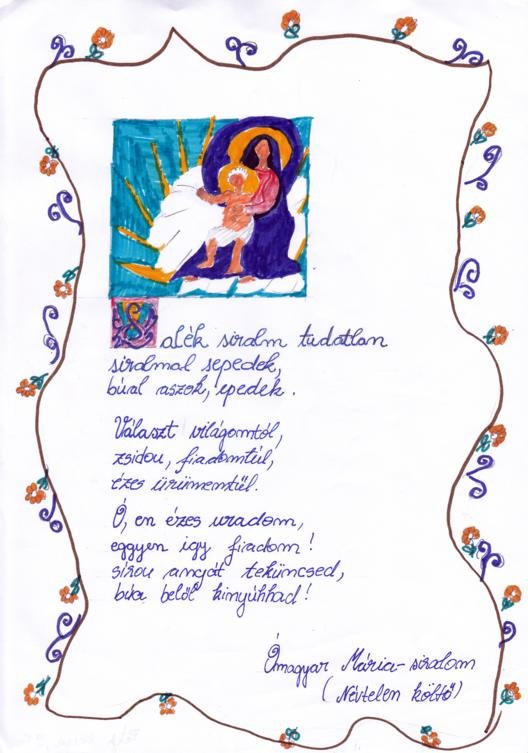 Salék siralm tudatlan
siralmal sepedek,
búal aszok, epedek.
Választ világomtól,
zsidou, fiadomtúl,
ézes ürümemtűl.
Ó, en ézes uradom,
eggyen igy fiadom!
sírou anyát teküncsed,
búa belől kinyúhhad!
Ómagyar Mária-siralom
(Névtelen költő)